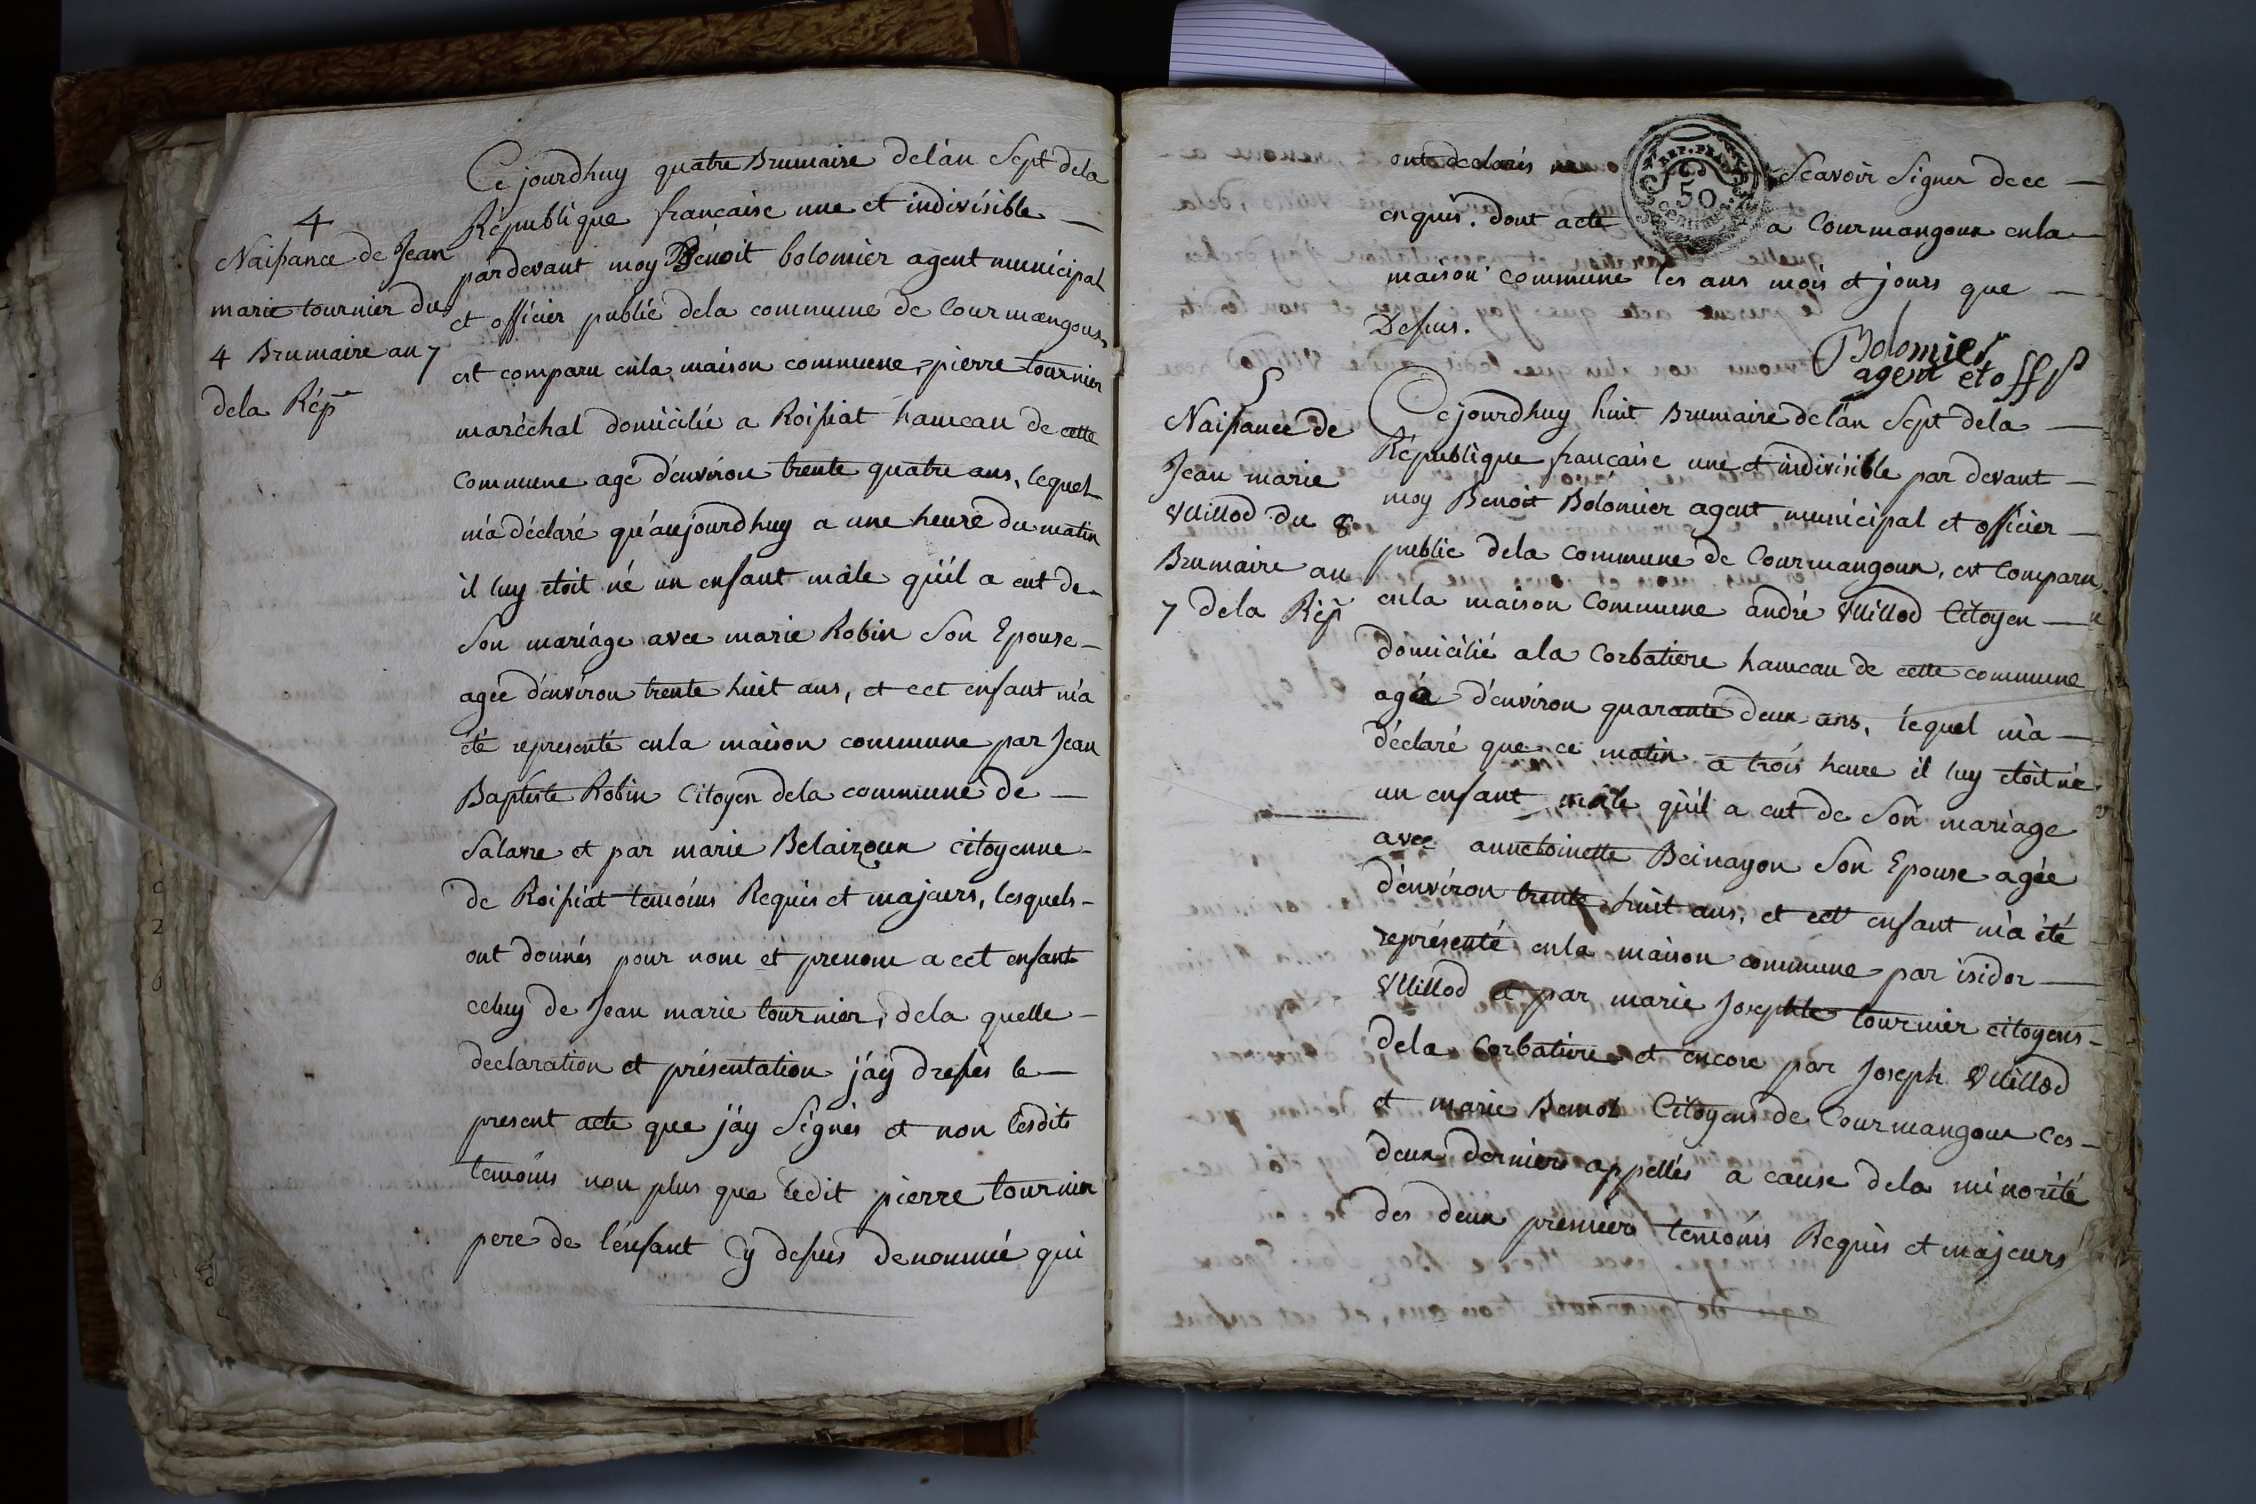 4
Naissance de Jean
marie tournier du
4 Brumaire an 7
dela Rép
Ce jourdhuy quatre Brumaire delan Sept dela
République francaise une et indivisible
pardevant moy Bénoit bolomier agent municipal
et officier public dela commune de Courmangoux
est comparu enla maison commune, pierre tournier
maréchal domicilié a Roissiat hameau de cette
commune agé d'environ trente quatre ans, lequel
m'a déclaré qu'aujourdhuy a une heure du matin
il luy etoit né un enfant mâle qu'il a eut de
Son mariage avec marie Robin Son Epouse
agée d'environ trente huit ans, et cet enfant m'a
été representé enla maison commune par Jean
Baptiste Robin Citoyen dela commune de
Salavre et par marie citoyenne
de Roissiat temoins Requis et majeurs, lesquels
ont donnés pour nom et prenom a cet enfant
celuy de Jean marie tournier, dela quelle
declaration et présentation j'ay dressés le
present acte que j'ay Signés et non lesdits
temoins non plus que ledit pierre tournier
pere de l'enfant cy dessus denommé qui
ont declarés ne Scavoir Signer de ce
REP. FRA.
50
CENTIMES
enquis. dont acte a Courmangoux enla
maison commune les ans mois et jours que
Dessus.
Bolomier
agent et off p
5
Naissance de
Jean marie
Vuillod du 8
Brumaire an
7 dela Rép
Ce jourdhuy huit Brumaire delan Sept dela
République francaise une et indivisible par devant
moy Benoit Bolomier agent municipal et officier
public dela commune de Courmangoux, est Comparu
enla maison Commune andré Vuillod Citoyen
domicilié a la Corbatiere hameau de cette commune
agée d'environ quarante deux ans, lequel m'a
déclaré que ce matin a trois heure il luy etoit né
un enfant mâle qu'il a eut de Son mariage
avec annetoinette Beinayon Son Epouse agée
d'environ trente huit ans, et cett enfant m'a été
représenté enla maison commune par isidor
Vuillod et par marie Josephte tournier citoyens
dela Corbatiere et encore par Joseph Vuillod
et marie Citoyens de Courmangoux Ces
deux derniers appellés a cause dela minorité
des deux premiers temoins Requis et majeurs